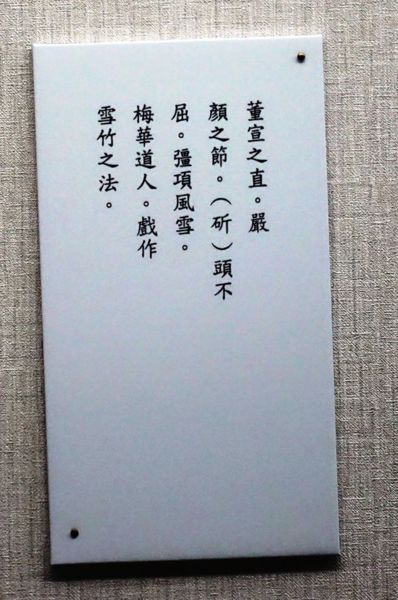 董宣之直。嚴
顏之節。（斫）頭不
屈。彊項風雪。
梅華道人。戲作
雪竹之法。